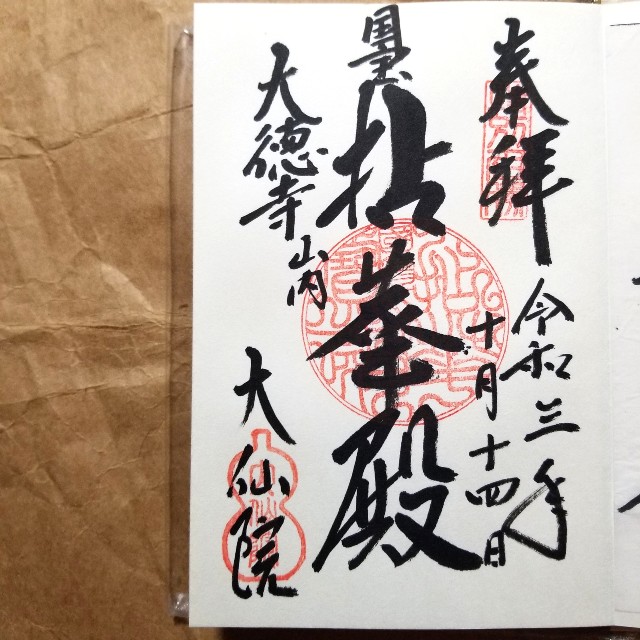 奉拝
令和三年
十月十四日
国宝
拈華殿
大徳寺山内
大仙院